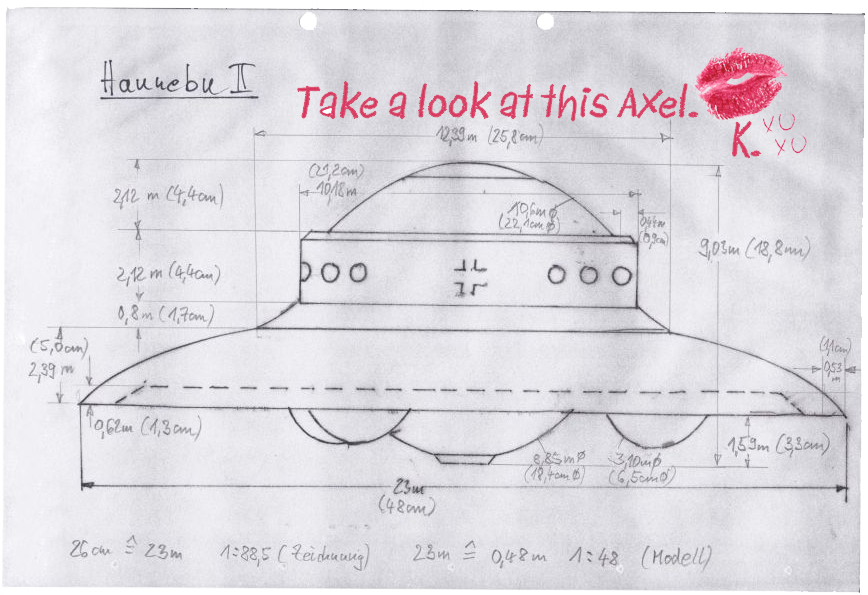 Haunebu II
Take a look at this AXel.
K. XO
XO
12,39m (25,8cm)
(21,2cm)
10,18m
2,12 m (4,4cm)
10,6m Ø
(22,1cm Ø)
0,44m
(0,9cm)
9,03m (18,8cm)
2,12 m (4,4cm)
0,8m (1,7cm)
(5,0cm)
2,39m
(1,1cm)
0,53
m
0,62m (1,3cm)
1,59m (3,3cm)
8,85mØ
(18,4cmØ)
3,10mØ
(6,5cmØ)
23m
(48cm)
26cm ≙ 23m 1:88,5 (Zeichnung) 23m ≙ 0,48m 1:48 (Modell)